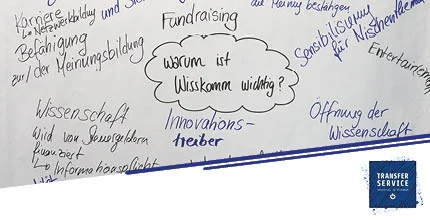 Karriere
↳ Netzwerkbildung
Fundraising
Befähigung
zur / der Meinungsbildung
Warum ist
Wisskomm wichtig?
Sensibilisierung
für Nischenthemen
Entertainment
Wissenschaft
wird von Steuergeldern
finanziert
↳ Informationspflicht
Innovations-
treiber
Öffnung der
Wissenschaft
TRANSFER
SERVICE